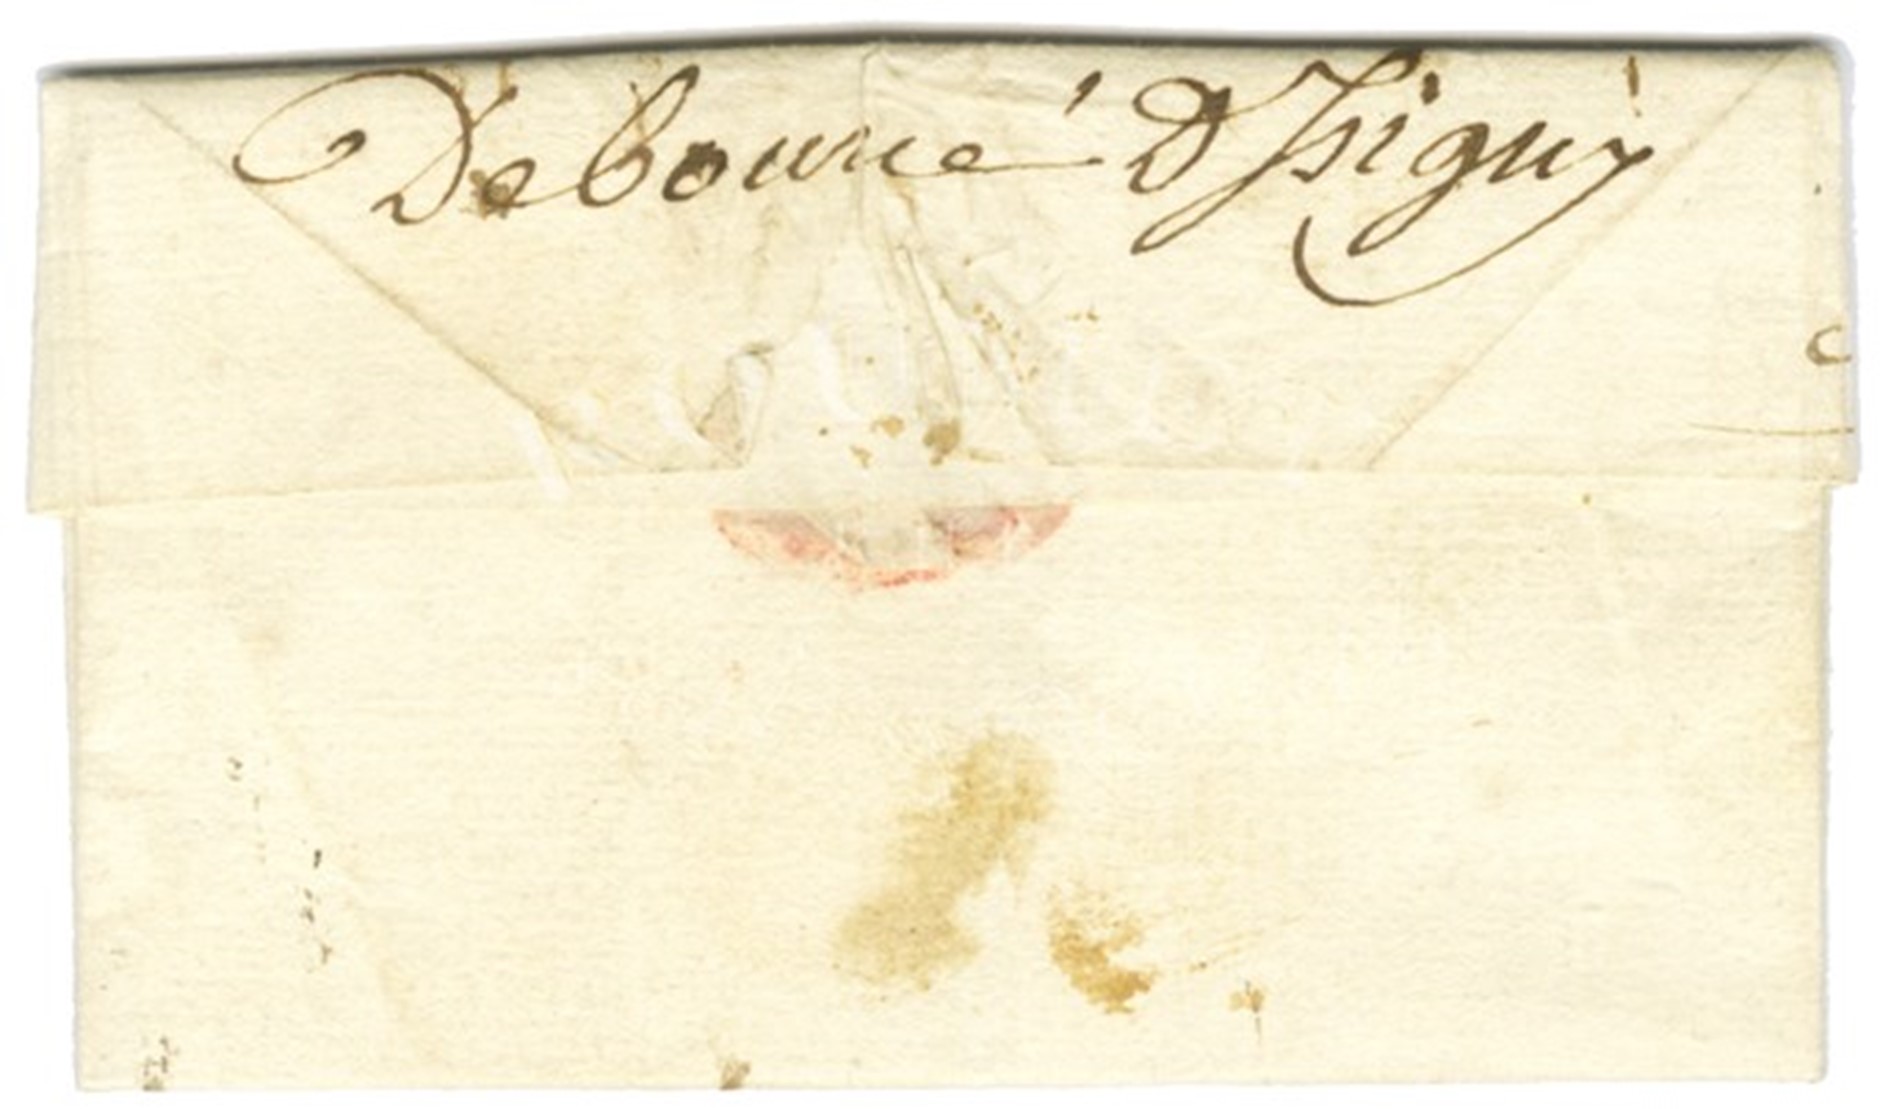 Debourcé D'Isigny